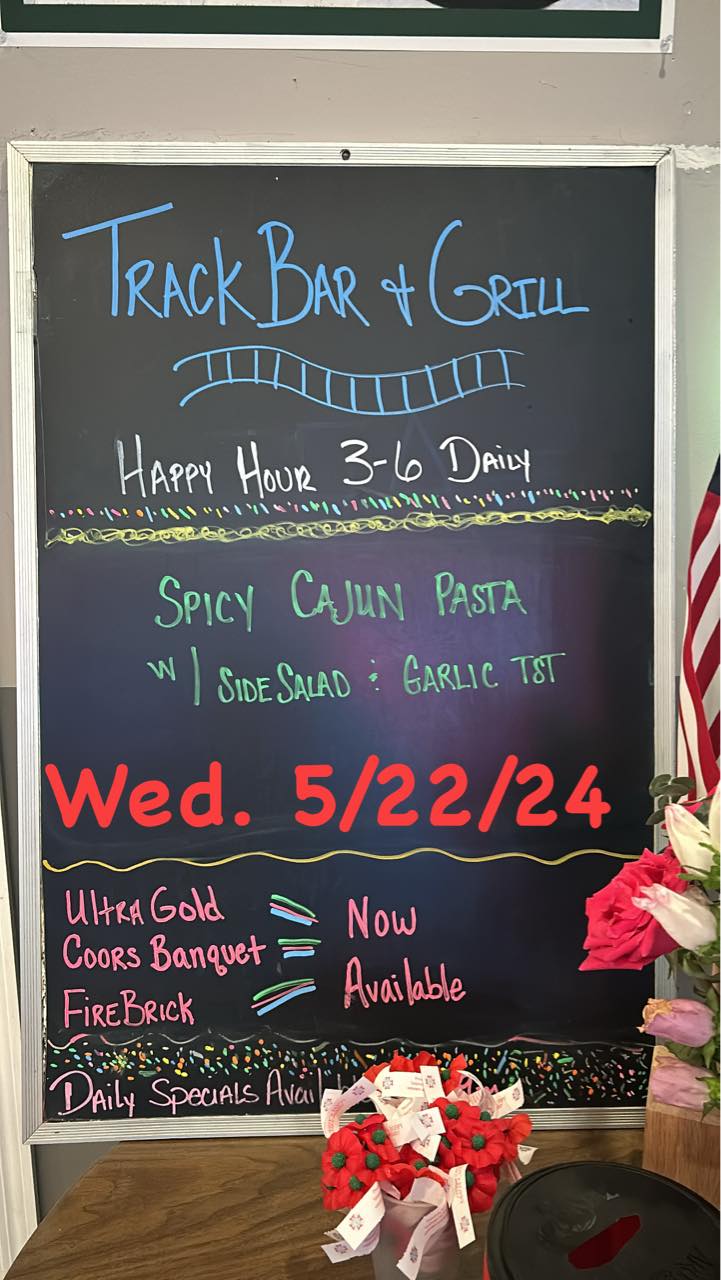 Track Bar & Grill
Happy Hour 3-6 Daily
Spicy Cajun Pasta
w/ Side Salad & Garlic Tst
Wed. 5/22/24
Ultra Gold
Coors Banquet
FireBrick
Now
Available
Daily Specials Avail